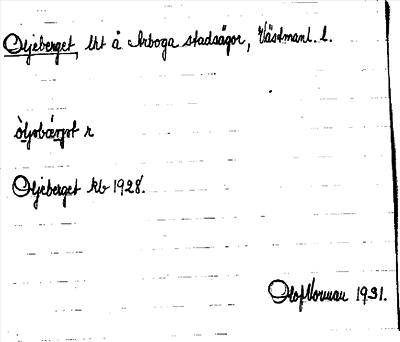 Oljeberget, lht å Arboga stadsägor, Västmanl. l.
òljobæ̀rjot r
Oljeberget kb 1928.
Olof Norman 1931.